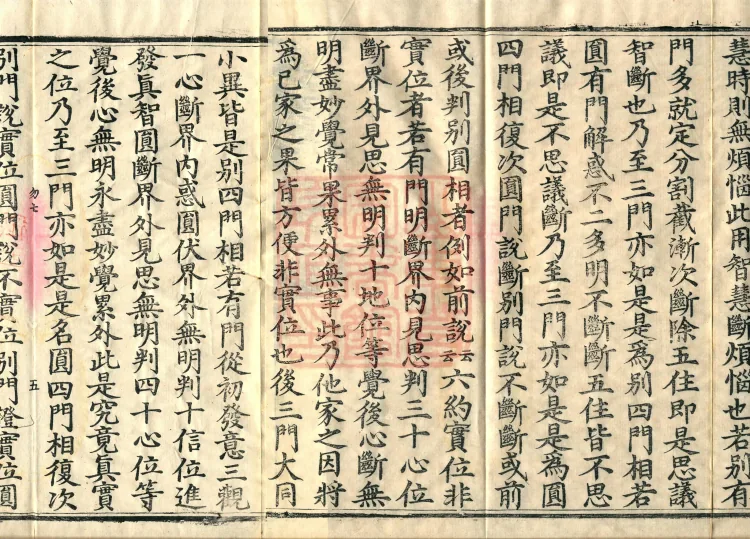 慧時則無煩惱此用智慧斷煩惱也若別有
門多就定分割截漸次斷除五住即是思議
智斷也乃至三門亦如是是爲別四門相若
圓有門解惑不二多明不斷斷五住皆不思
議即是不思議斷乃至三門亦如是是爲圓
四門相復次圓門說斷別門說不斷斷或前
或後判別圓相者例如前說云云六約實位非
實位者若有門明斷界內見思判三十心位
斷界外見思無明判十地位等覺後心斷無
明盡妙覺常果累外無事此乃他家之因將
爲已家之果皆方便非實位也後三門大同
小異皆是別四門相若有門從初發意三觀
一心斷界內惑圓伏界外無明判十信位進
發眞智圓斷界外見思無明判四十心位等
覺後心無明永盡妙覺累外此是究竟眞實
之位乃至三門亦如是是名圓四門相復次
勿七
五
別門說實位圓門說不實位別門證實位圓